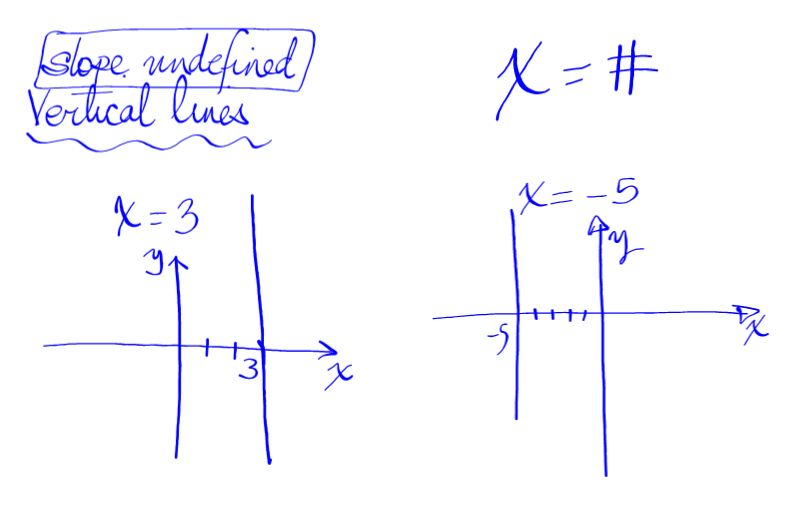 Slope undefined
Vertical lines
x = #
x = 3
y
3
x
x = -5
y
-5
x